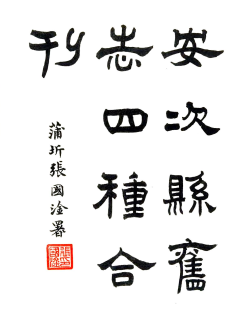 安次縣舊
志四種合
刊
蒲圻張國淦署